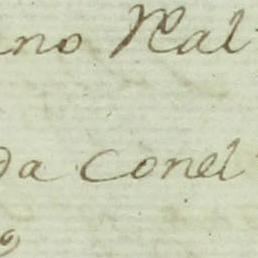 no Real
da conel